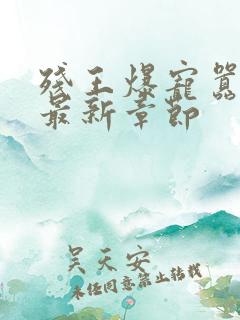 残王爆宠嚣
最新章节
吴天安
未经同意禁止转载